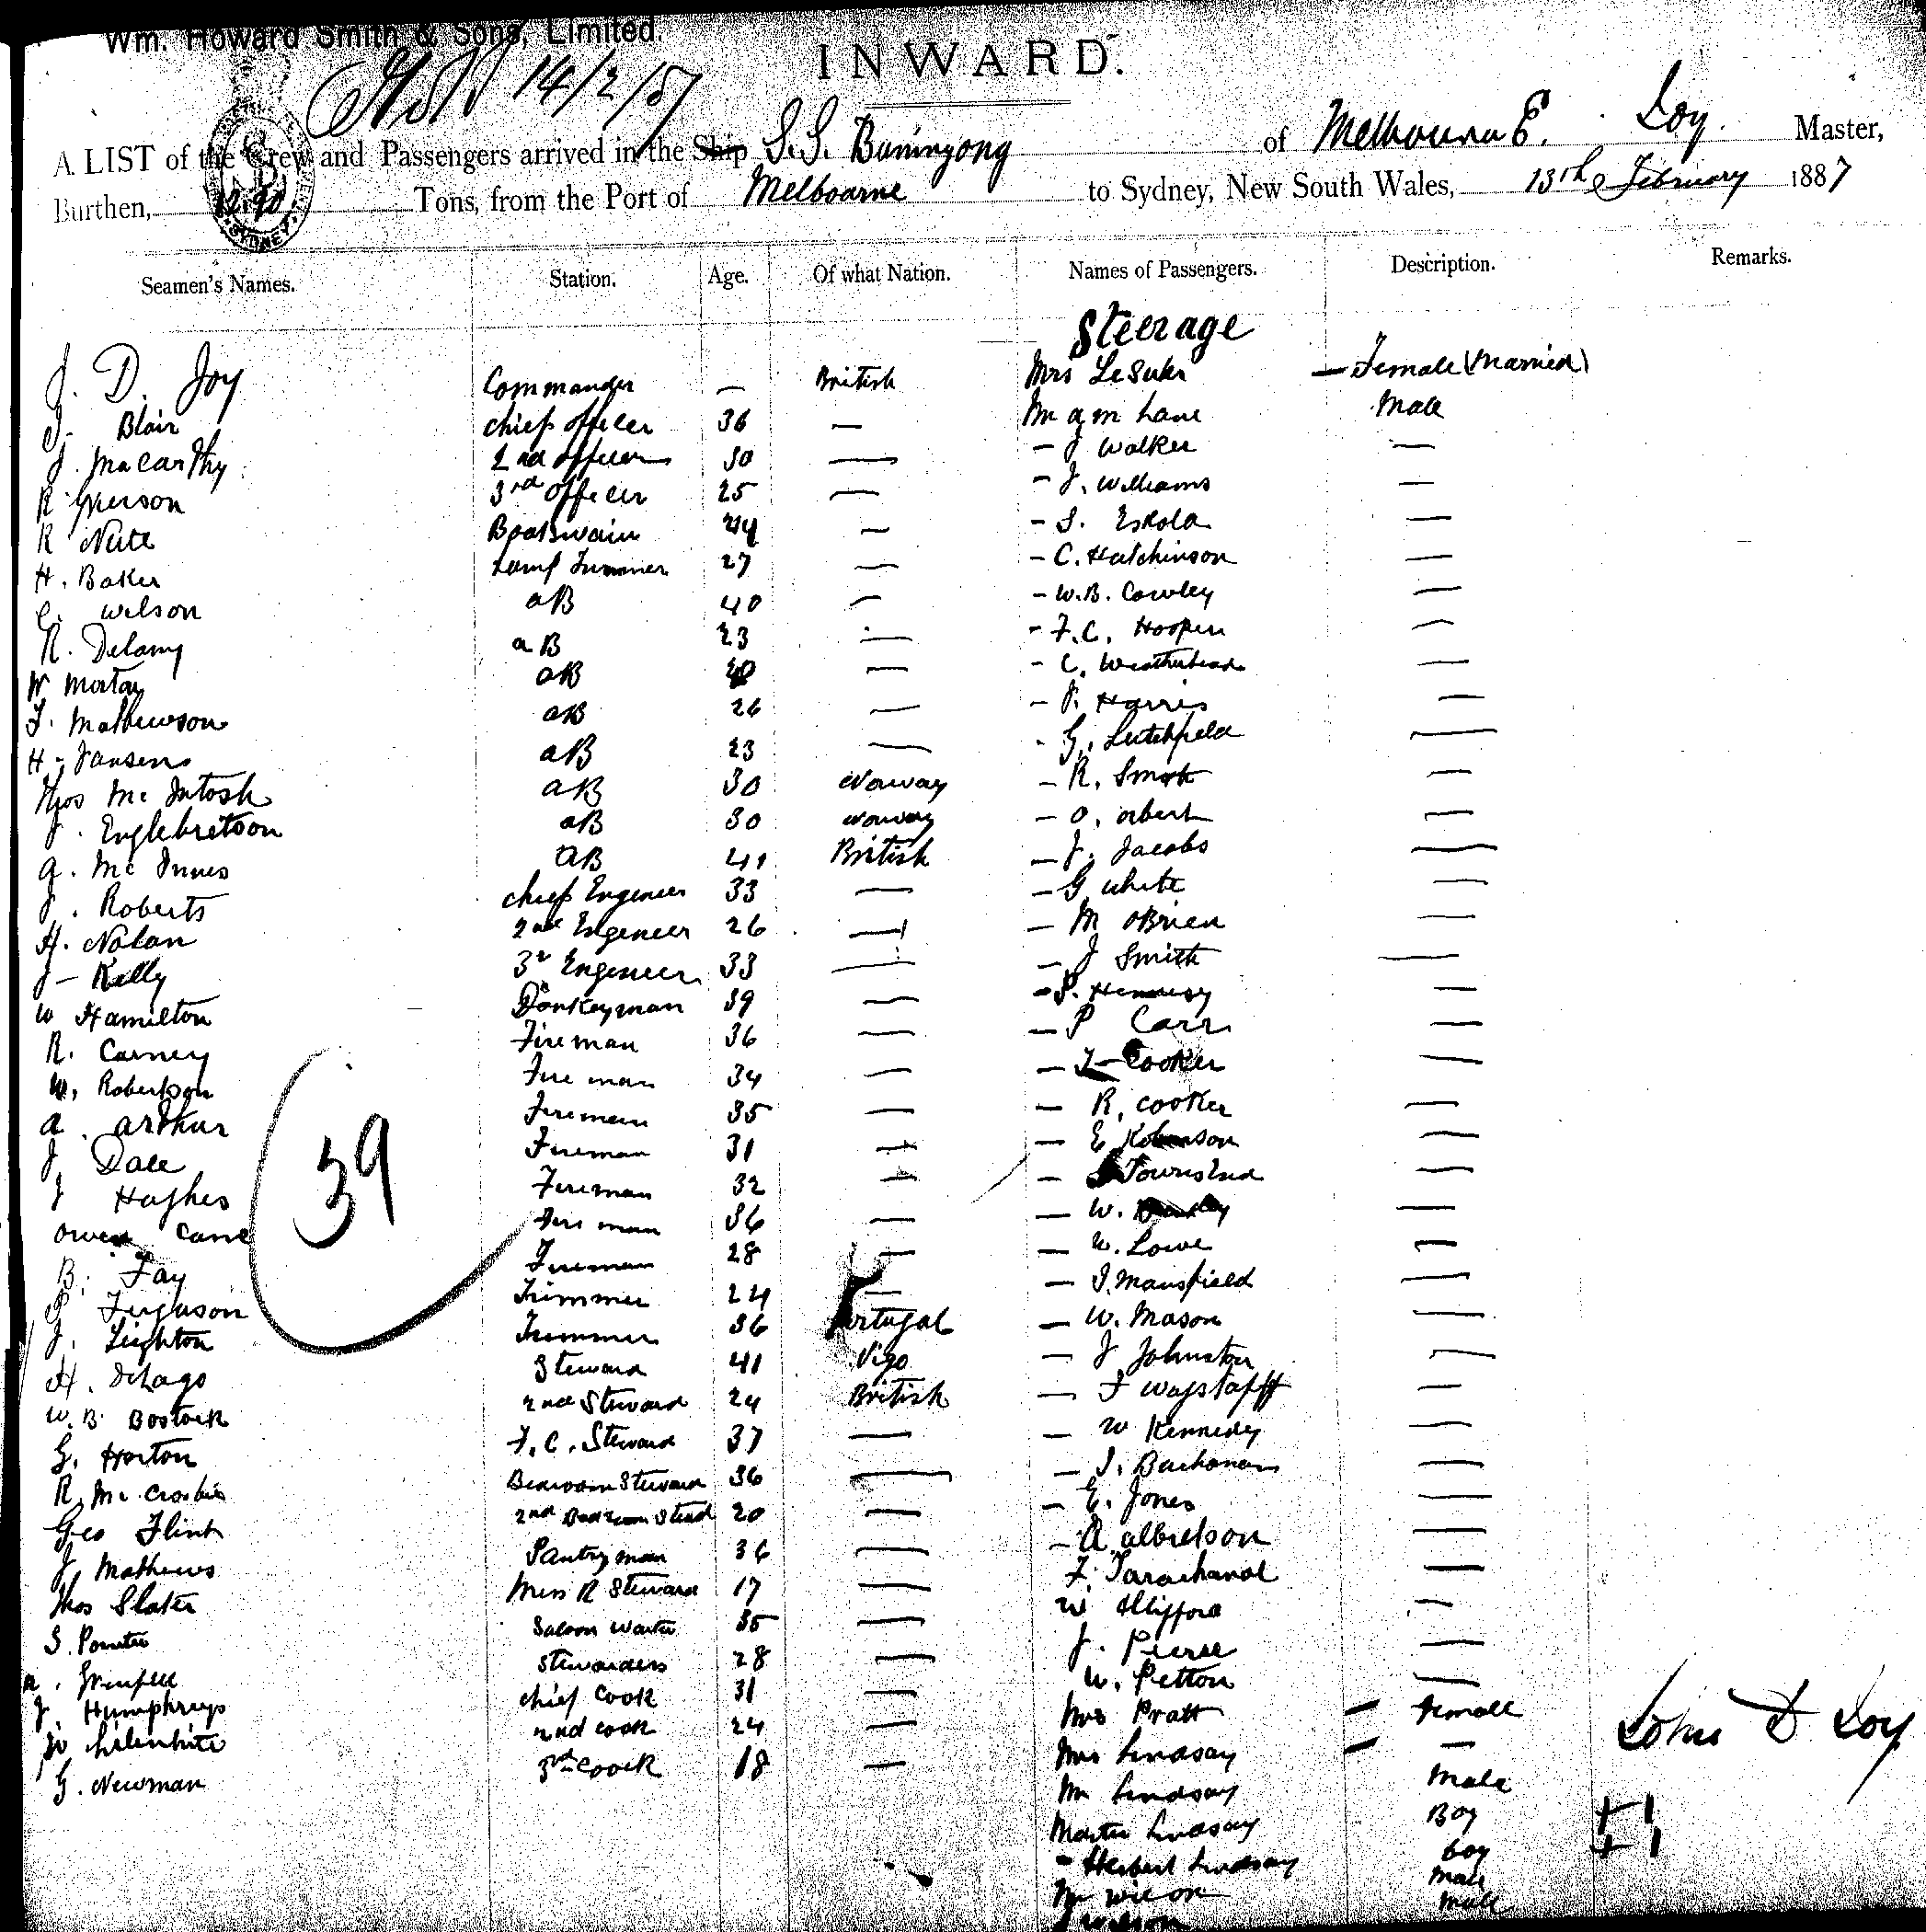 Wm. Howard Smith & Sons, Limited.
14/2/87
INWARD.
A LIST of the Crew and Passengers arrived in the Ship S.S. Buninyong of Melbourne Master,
Burthen, Tons, from the Port of Melbourne to Sydney, New South Wales, 13th February 1887
Seamen's Names. Station. Age. Of what Nation. Names of Passengers. Description. Remarks.
Steerage
J. D. Joy Commander — British Mrs LeSuer — Female (Married)
Blair chief officer 36 — Mr Lane Male
J. Macarthy 2nd officer 30 — - J Walker —
R Grierson 3rd officer 25 — - J. Williams —
R Boatswain 44 — - S. Eskola —
H. Baker Lamp Trimmer 27 — - C. Hutchinson —
C. Wilson aB 40 — - W.B. Cowley —
R. Delany aB 23 — - F.C. Hooper —
W aB — - C. Weatherhead —
F. Mathewson aB 26 — - Harris —
H. Jansens aB 23 — - G. Lutchfield —
Thos Mc Intosh aB 30 Norway - R. Smith —
J. Englebretson aB 30 Norway - O. —
A. Mc Innes aB 41 British - J. Jacobs —
J. Roberts chief Engeneer 33 — - G White —
H. Nolan 2nd Engeneer 26 — - M OBrien —
J - Kelly 3r Engeneer 33 — - J Smith —
W Hamilton Donkeyman 39 — - Hennesy —
R. Carney Fireman 36 — - P Carr —
W. Robertson Fire man 34 — - Cooker —
A. Arthur Fireman 35 — - R. Cooker —
J Dale Fireman 31 — - E Robinson —
J Hughes Fireman 32 — - Townshend —
Owen Cane Fire man 36 — - W. —
B. Fay Fireman 28 — - W. Lowe —
Ferguson Trimmer 24 — - J. Mansfield —
J. Leighton Trimmer 36 Portugal - W. Mason —
H. Steward 41 Vigo - J Johnston —
W. B. Bostock 2nd Steward 24 British - F Wagstaff —
G. Horton F.C. Steward 37 — - W Kennedy —
R. Mc Crosbie Bedroom Steward 36 — - J. Buchanan —
Geo Flint 2nd Bedroom Stead 20 — - E. Jones —
J Mathews Pantryman 36 — - A albretson —
Thos Slater Mess R Steward 17 — F. Tarachand —
S. Saloon Waiter 35 — W —
Stewardess 28 — J. Pierse —
J. Humphreys chief Cook 31 — W. Petton —
W 2nd cook 24 — Mrs Pratt - Female
G. Newman 3rd Coock 18 — Mrs Lindsay - —
Mr Lindsay Male
Master Lindsay Boy +1
- Herbert Lindsay boy +1
Mr Male
Wilson Male
39
John D Joy